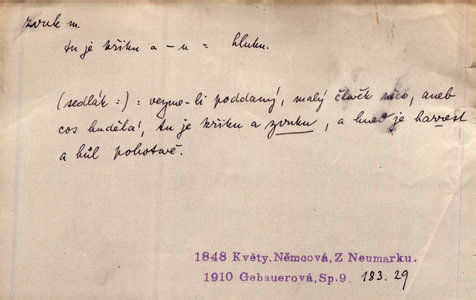 zvuk m.
tu je křiku a -u = hluku.
(sedlák :) : vezme-li poddaný, malý člověk něco, aneb
cos hudělá, tu je křiku a zvuku, a hned je harrest
a hůl pohotově.
1848 Květy. Němcová, Z Neumarku.
1910 Gebauerová, Sp. 9. 183. 29